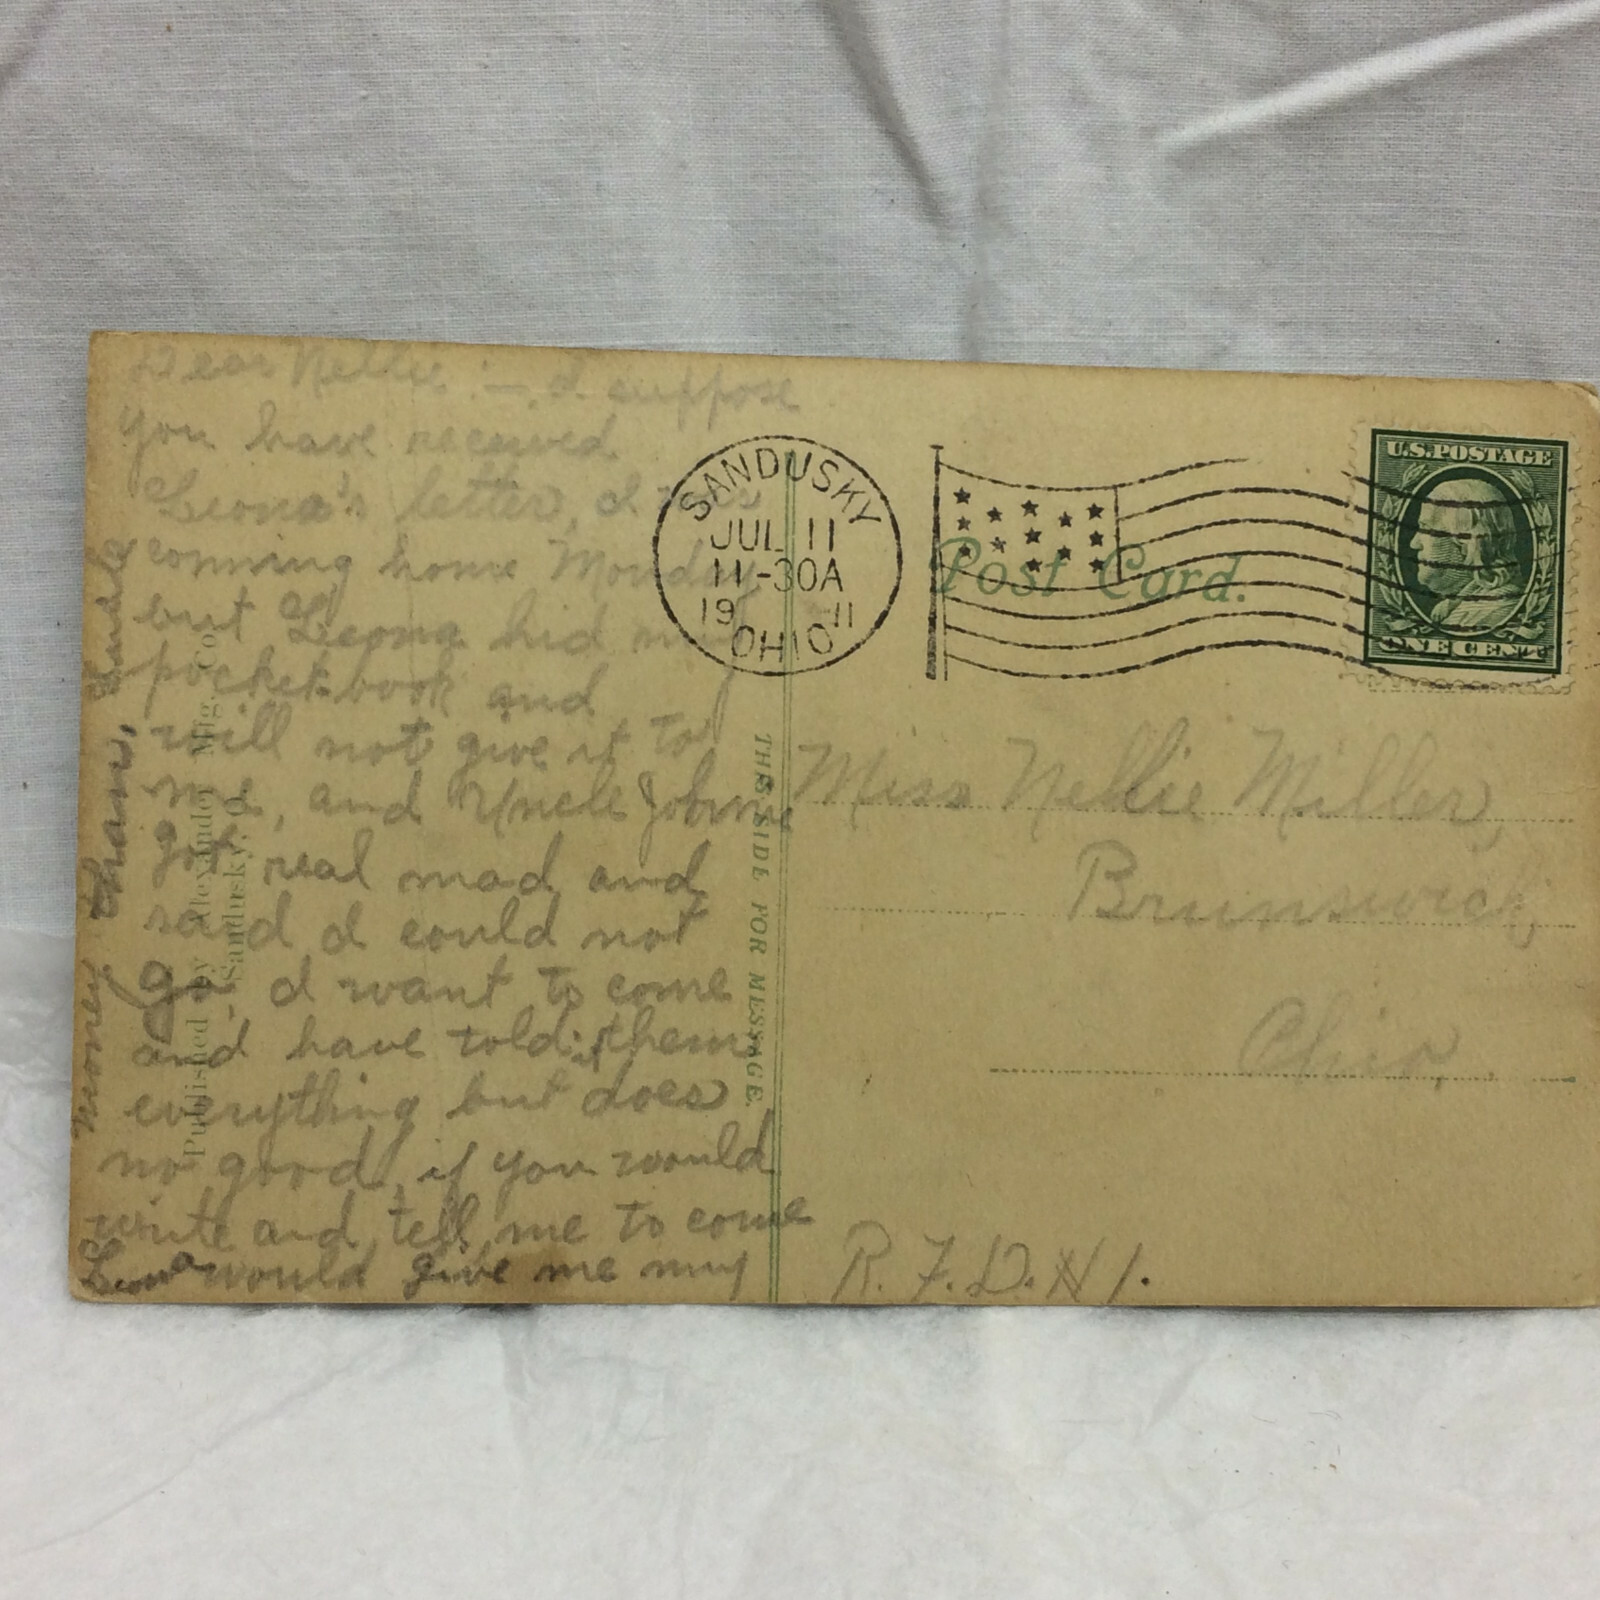 Dear Nellie :— I suppose
you have received
Leona's letter, I was
comming home Monday
but Leona hid my
pocket book and
will not give it to
me, and Uncle Johnnie
got real mad and
said I could not
go, I want to come
and have told them
everything but it does
no good, if you would
write and tell me to come
Leona would give me my
money then,
Published by Alexander Mfg. Co.
Sandusky, O.
THIS SIDE FOR MESSAGE.
SANDUSKY
JUL 11
11-30A
19 11
OHIO
Post Card.
U.S. POSTAGE
ONE CENT
Miss Nellie Miller,
Brunswick,
Ohio,
R. F. D. # 1.